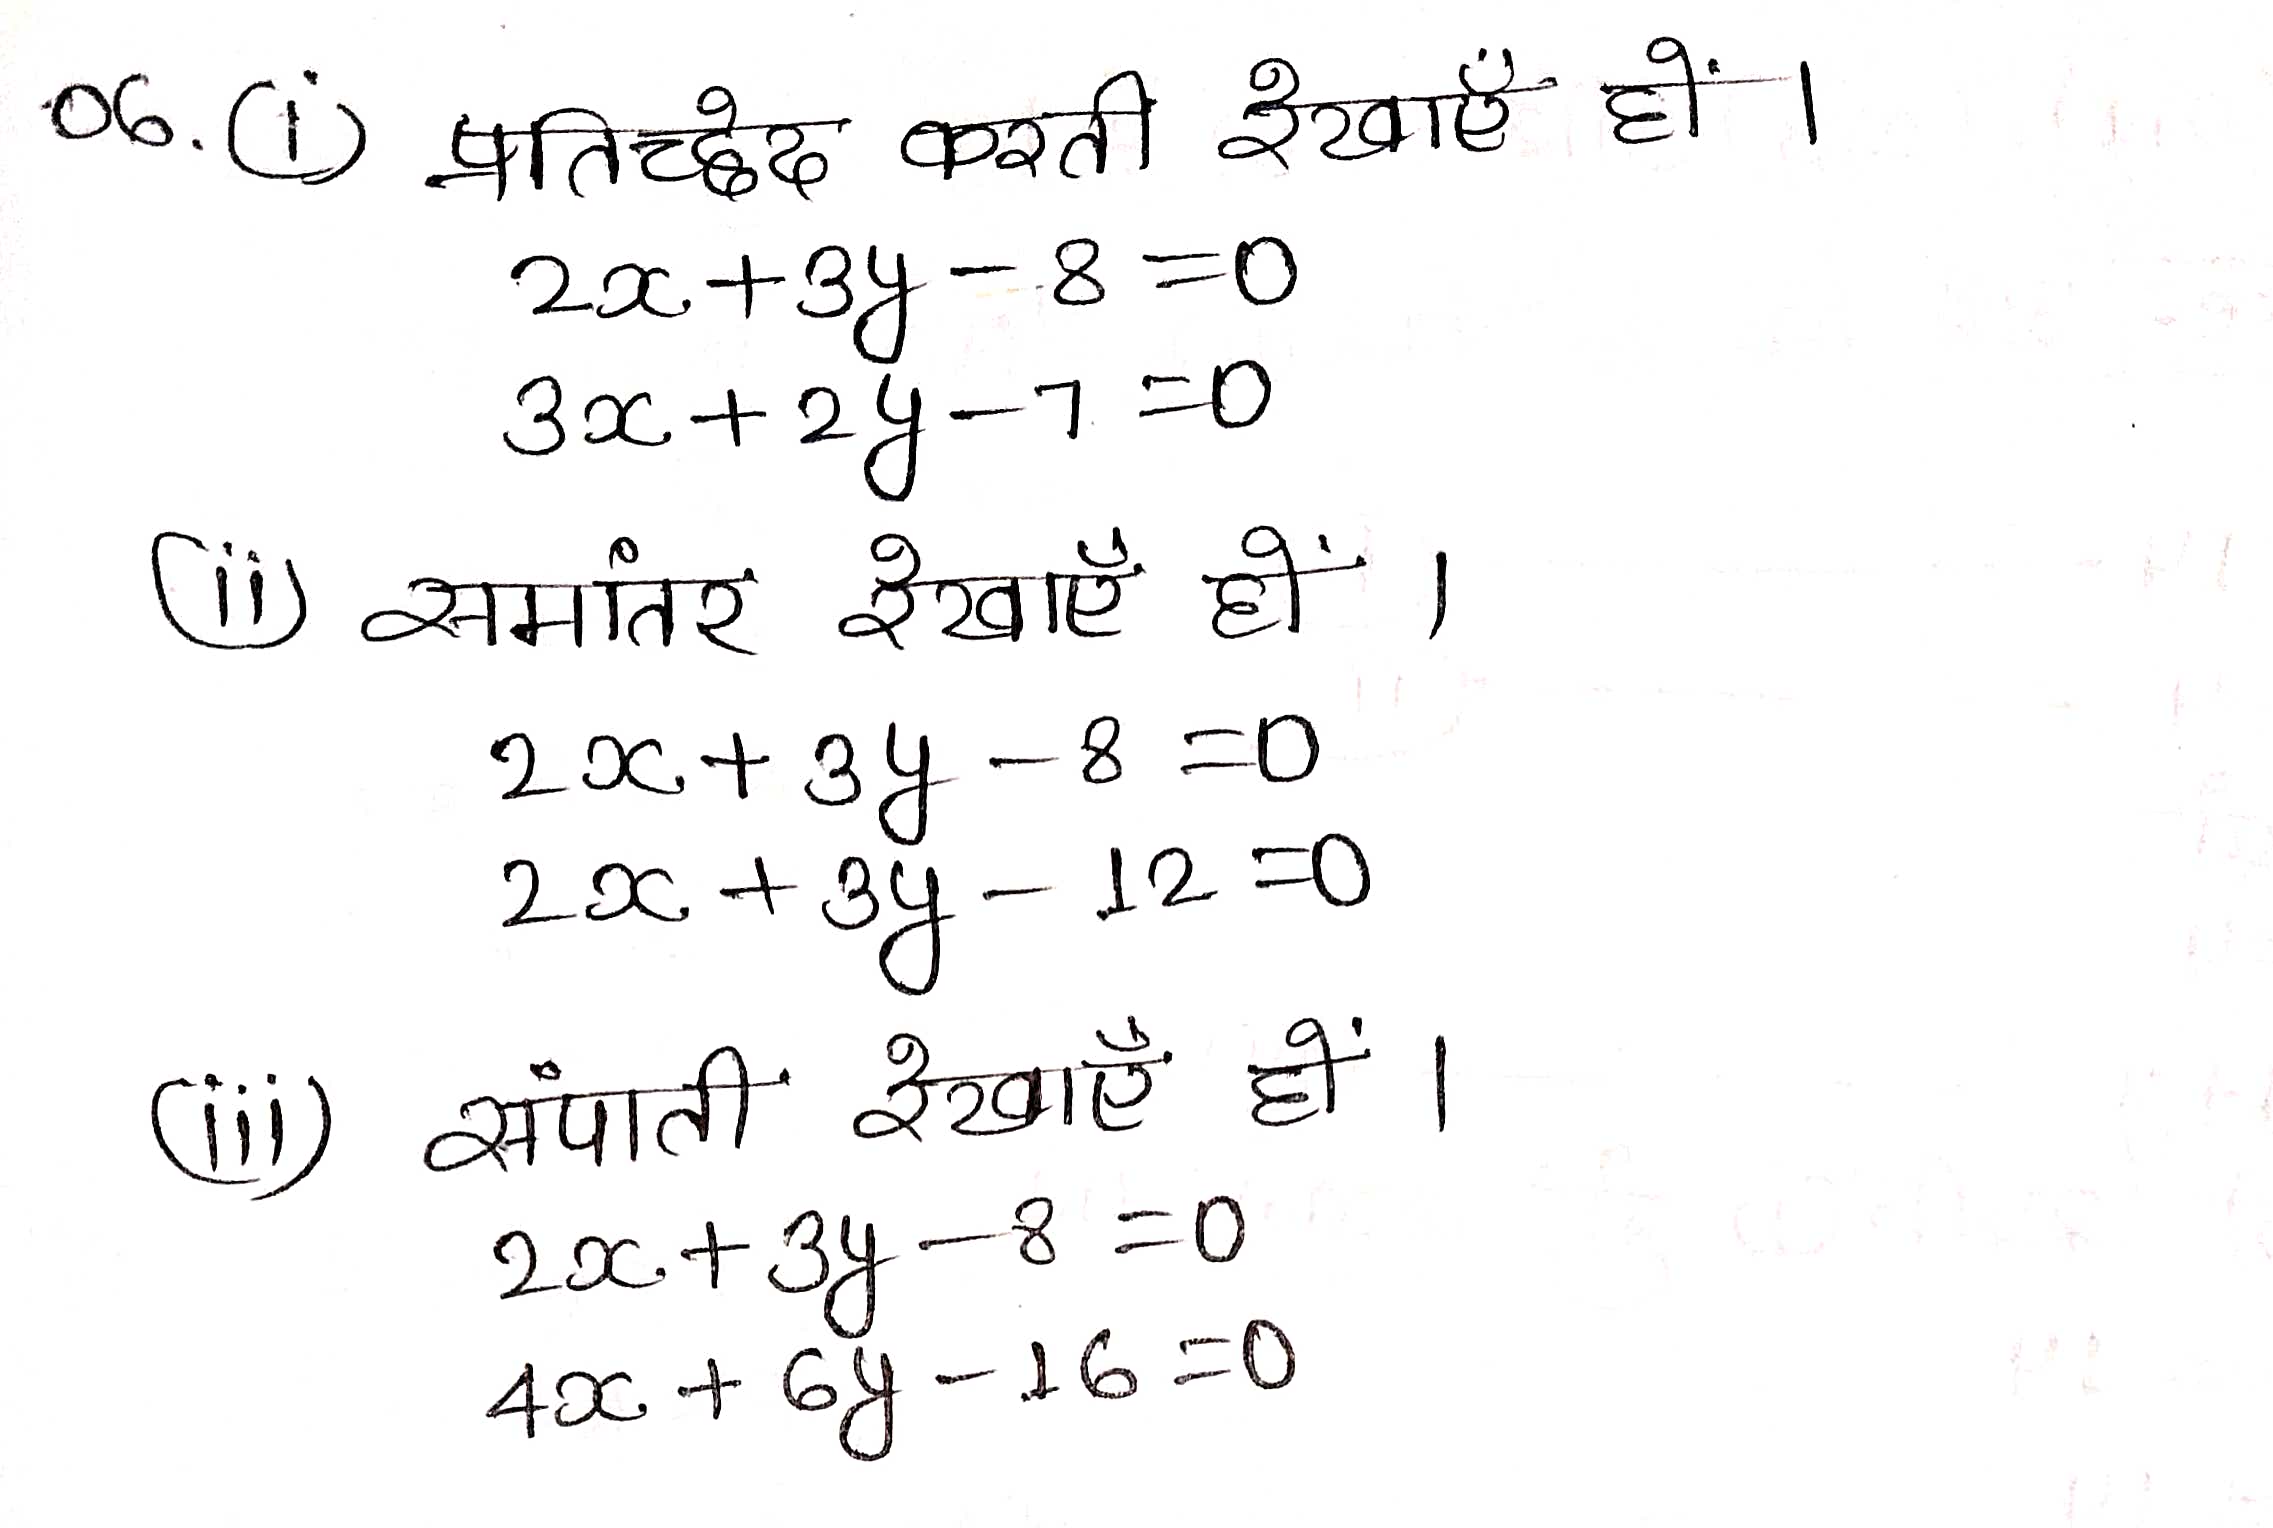 06. (i) प्रतिच्छेद करती रेखाएँ हों ।
2x + 3y - 8 = 0
3x + 2y - 7 = 0
(ii) समांतर रेखाएँ हों ।
2x + 3y - 8 = 0
2x + 3y - 12 = 0
(iii) संपाती रेखाएँ हों ।
2x + 3y - 8 = 0
4x + 6y - 16 = 0